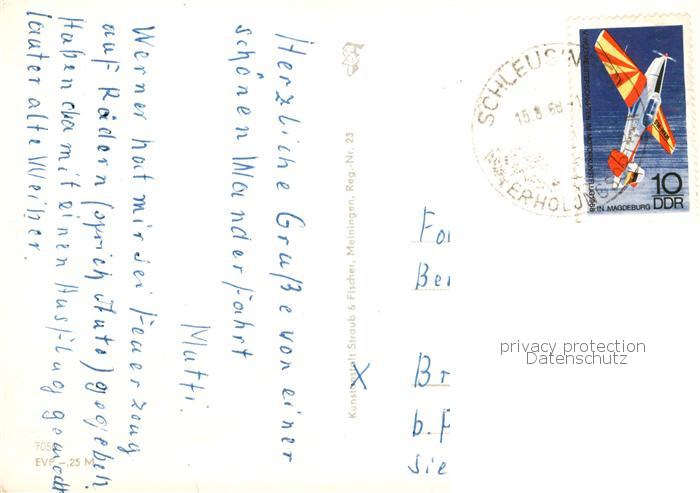 Herzliche Grüße von einer
schönen Wanderfahrt
Mutti.
Werner hat mir sei Feuerzeug
auf Rädern (sprich Auto) gegeben.
Haben da mit einen Ausflug gemacht
lauter alte Weiber.
Kunstanstalt Straub & Fischer, Meiningen, Reg.-Nr. 23
EVP -,25 M
SCHLEUS
15.8.68
ERHOLUN
10
DDR
IN MAGDEBURG
Ber
Br
b.
Sie
privacy protection
Datenschutz